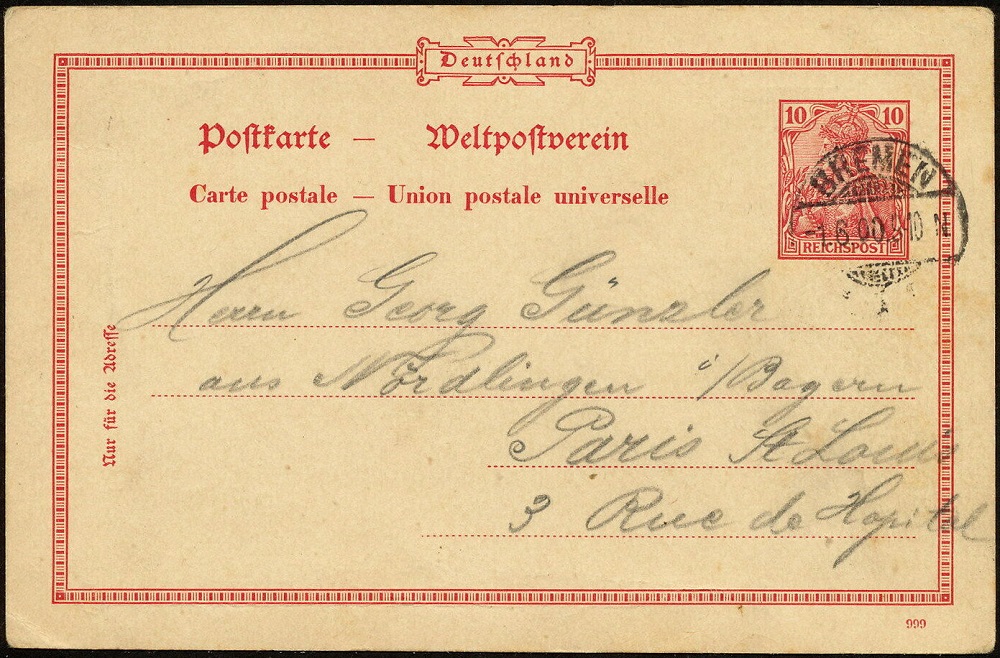 Deutschland
Postkarte — Weltpostverein
Carte postale — Union postale universelle
10 10
REICHSPOST
BREMEN
-1.6.00. 5-10 N
Herrn Georg Günzler
aus Nördlingen i/Bayern
Paris St Louis
3 Rue de Hopital
Nur für die Adresse
999